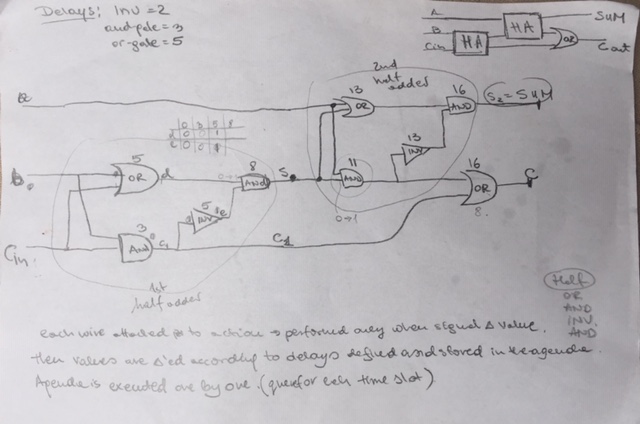 Delays: INV = 2
and-gate = 3
or-gate = 5
A
B
Cin
HA
HA
OR
SUM
Cout
2nd
half adder
a
13
OR
16
AND
S2 = SUM
0 3 5 8
d 0 0 1
e 0 0
13
INV
11
AND
0→1
16
OR
8
C
b
5
OR
d
8
AND
S
5
INV
e
Cin
3
AND
C1
C1
1st
half adder
Half
OR
AND
INV.
AND
each wire attached to action → performed only when signal Δ value.
then values are Δ'ed accordly to delays defined and stored in the agenda.
Agenda is executed one by one. (queue for each time slot)